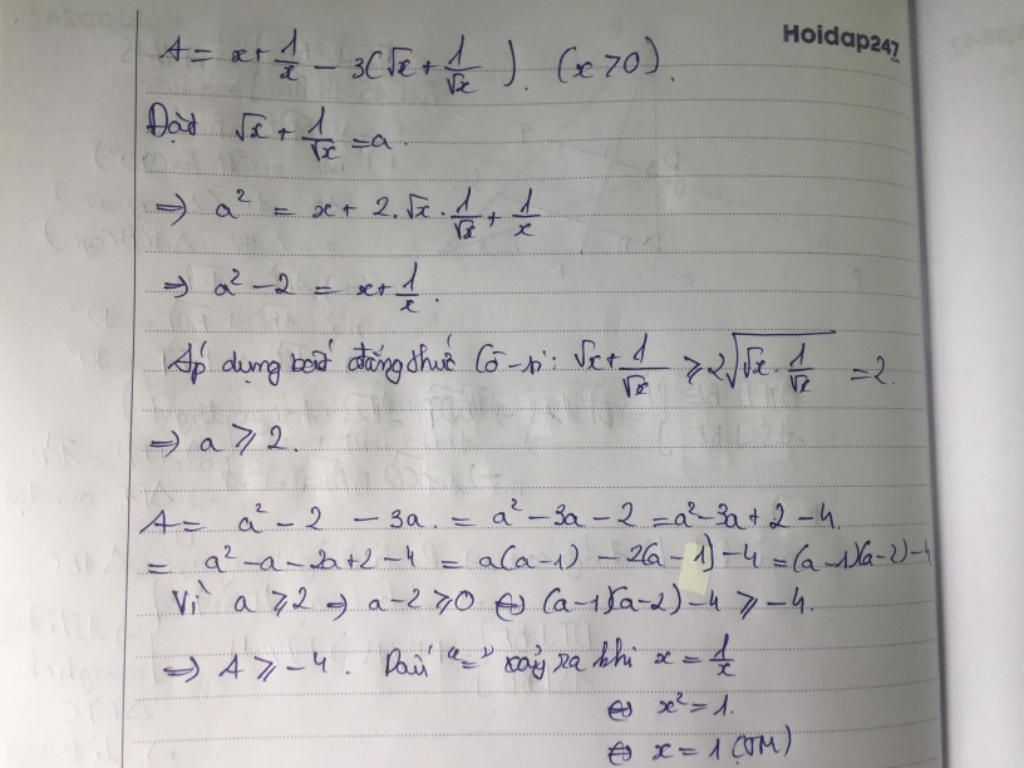 Hoidap247
A = x + 1/x − 3(√x + 1/√x). (x > 0).
Đặt √x + 1/√x = a.
⇒ a² = x + 2.√x.1/√x + 1/x
⇒ a² − 2 = x + 1/x.
Áp dụng bất đẳng thức Cô-si: √x + 1/√x ≥ 2√(√x.1/√x) = 2.
⇒ a ≥ 2.
A = a² − 2 − 3a. = a² − 3a − 2 = a² − 3a + 2 − 4.
= a² − a − 2a + 2 − 4 = a(a − 1) − 2(a − 1) − 4 = (a − 1)(a − 2) − 4
Vì a ≥ 2 ⇒ a − 2 ≥ 0 ⇔ (a − 1)(a − 2) − 4 ≥ −4.
⇒ A ≥ −4. Dấu "=" xảy ra khi x = 1/x
⇔ x² = 1.
⇔ x = 1 (TM)